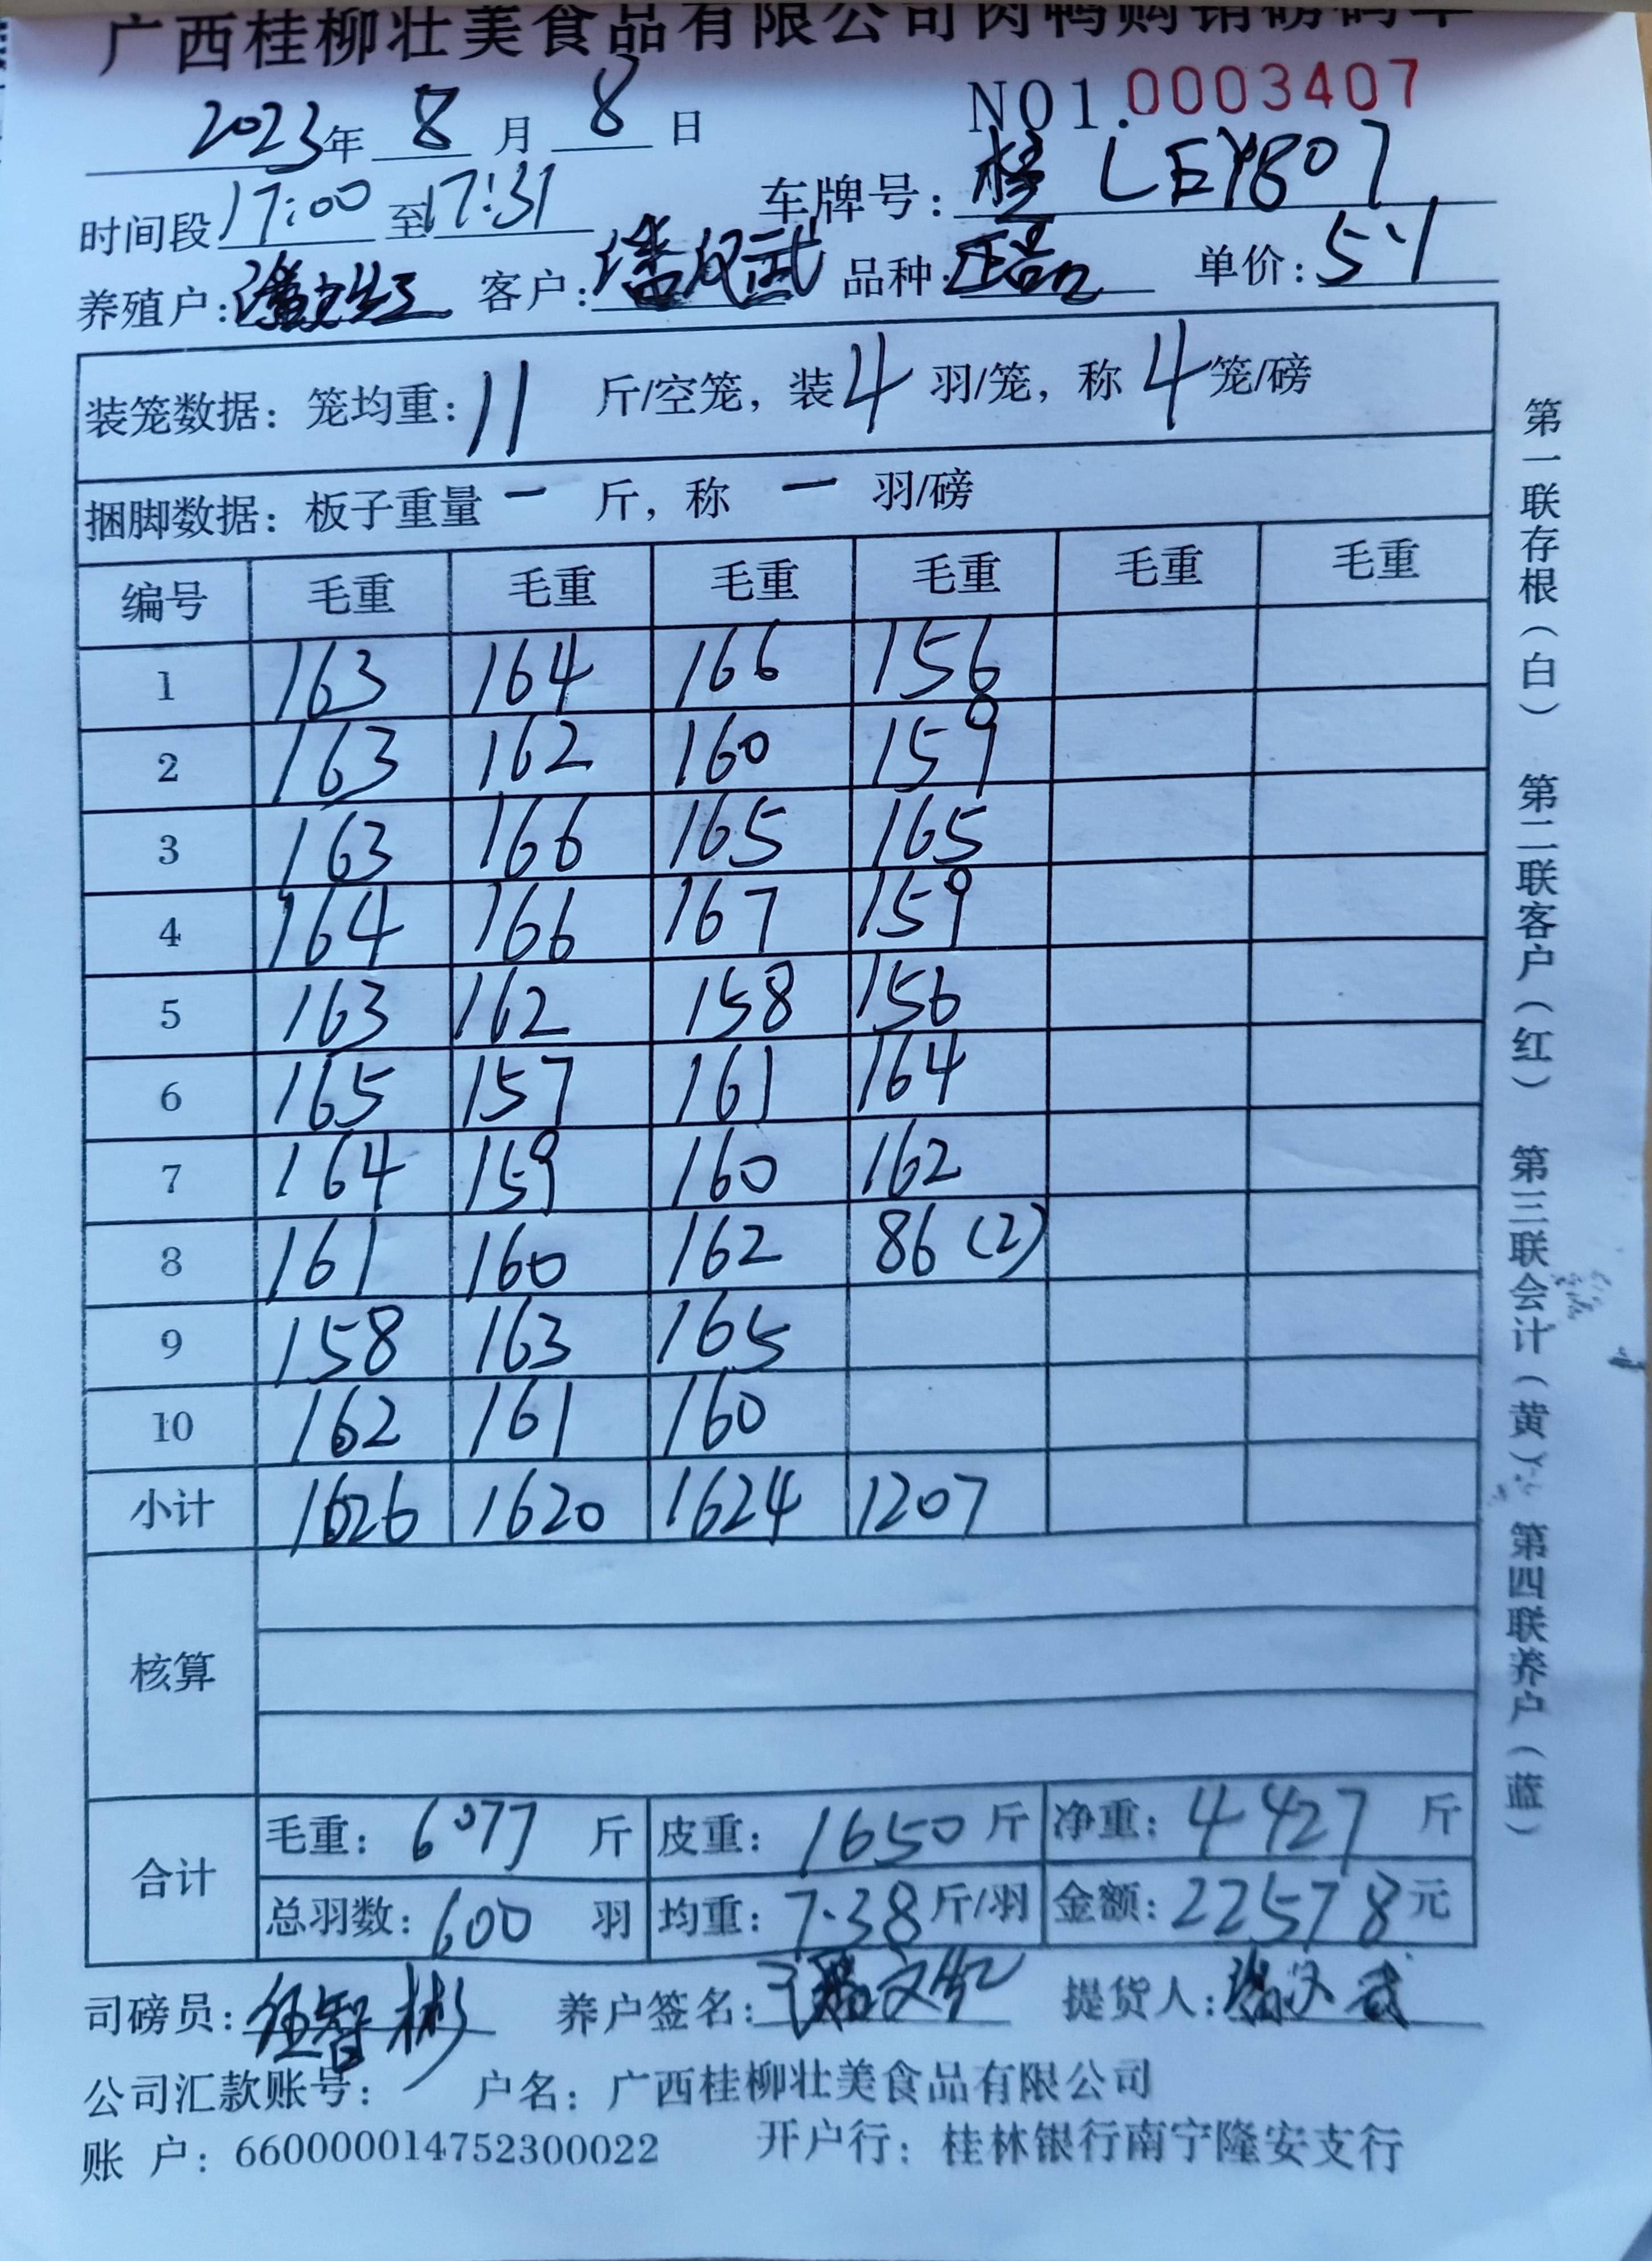 广西桂柳壮美食品有限公司肉鸭购销磅码单
NO1.0003407
2023年 8 月 8 日
时间段 17:00 至 17:31 车牌号: 桂 LEY807
养殖户: 客户: 潘汉武 品种: 正品 单价: 5.1
装笼数据: 笼均重: 11 斤/空笼, 装 4 羽/笼, 称 4 笼/磅
捆脚数据: 板子重量 一 斤, 称 一 羽/磅
编号 毛重 毛重 毛重 毛重 毛重 毛重
1 163 164 166 156
2 163 162 160 159
3 163 166 165 165
4 164 166 167 159
5 163 162 158 156
6 165 157 161 164
7 164 159 160 162
8 161 160 162 86 (2)
9 158 163 165
10 162 161 160
小计 1626 1620 1624 1207
核算
合计
毛重: 6077 斤 皮重: 1650 斤 净重: 4427 斤
总羽数: 600 羽 均重: 7.38 斤/羽 金额: 22578 元
司磅员: 伍智彬 养户签名: 潘文红 提货人: 潘汉武
公司汇款账号: 户名: 广西桂柳壮美食品有限公司
账 户: 660000014752300022 开户行: 桂林银行南宁隆安支行
第一联存根(白) 第二联客户(红) 第三联会计(黄) 第四联养户(蓝)